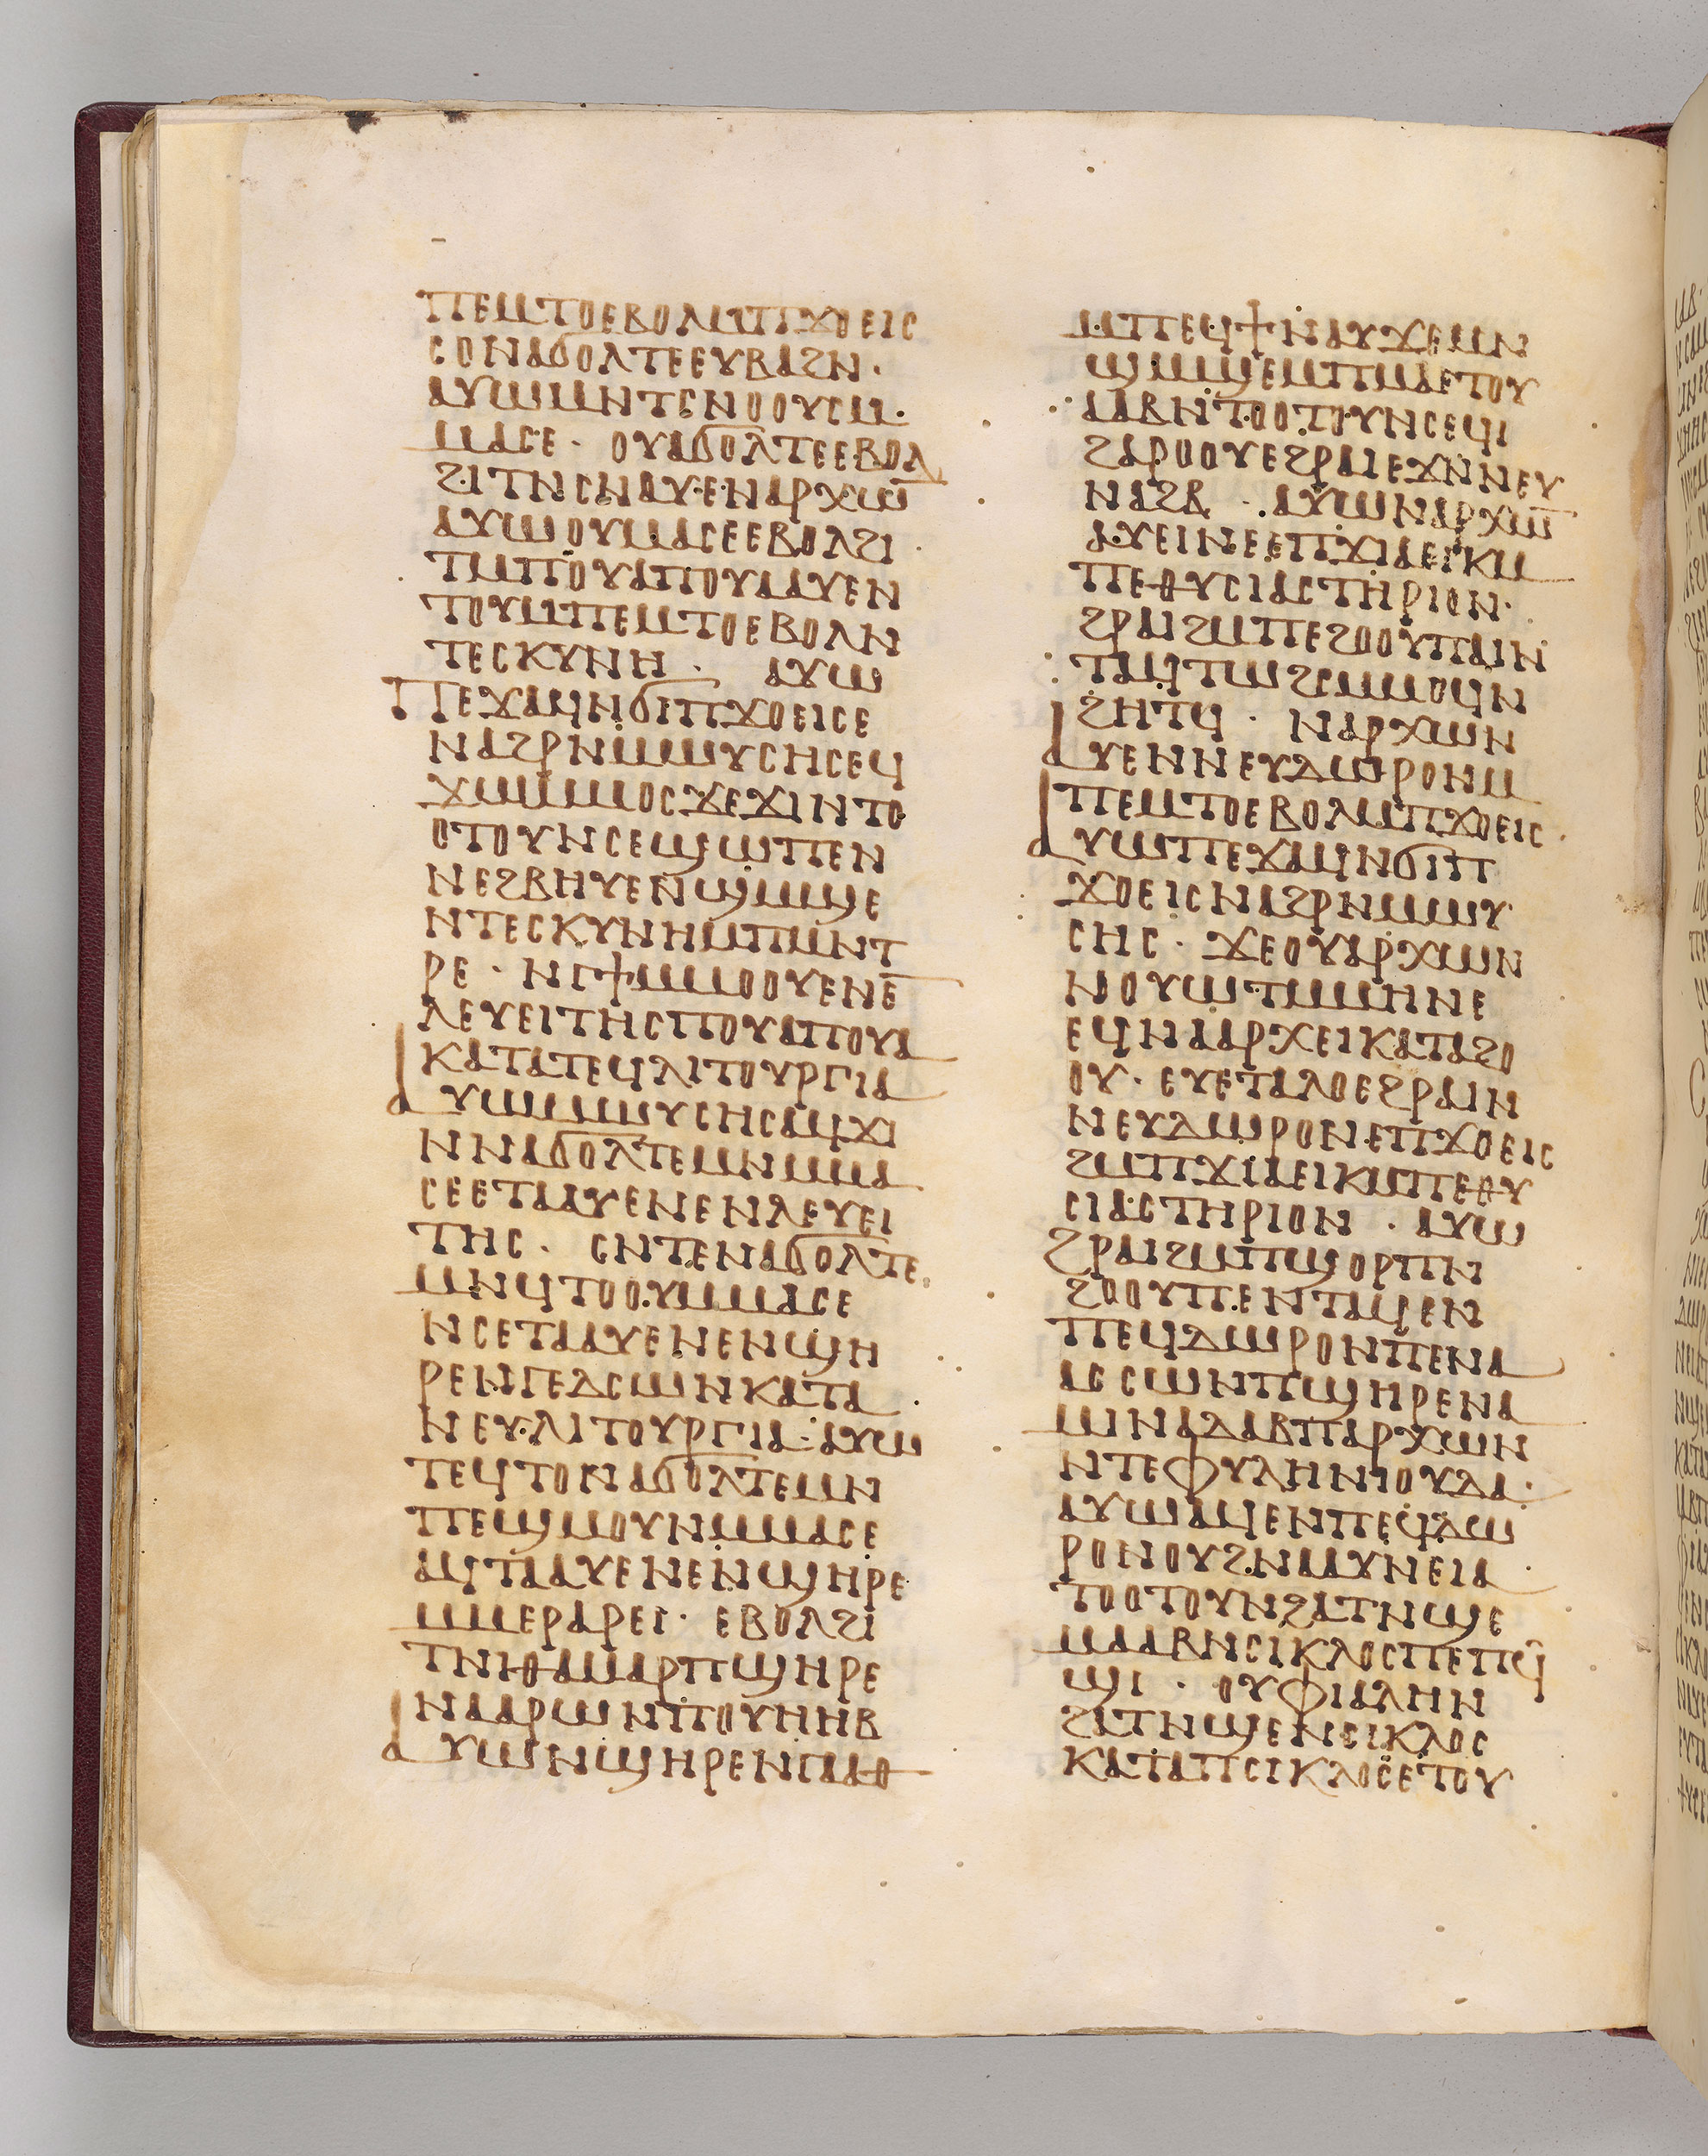 ⲡⲉⲙⲧⲟⲉⲃⲟⲗⲙⲡϫⲟⲉⲓⲥ
ⲥⲟⲛⲁϭⲟⲗⲧⲉⲉⲩⲃⲁϩⲛ·
ⲁⲩⲱⲙⲛⲧⲥⲛⲟⲟⲩⲥⲙ·
ⲙⲁⲥⲉ· ⲟⲩⲁϭⲟⲗⲧⲉⲉⲃⲟⲗ
ϩⲓⲧⲛⲥⲛⲁⲩ·ⲉ·ⲛⲁⲣⲭⲱ̅
ⲁⲩⲱⲟⲩⲙⲁⲥⲉⲉⲃⲟⲗϩⲓ
ⲧⲙⲡⲟⲩⲁⲡⲟⲩⲁⲁⲩⲉⲛ
ⲧⲟⲩⲙⲡⲉⲙⲧⲟⲉⲃⲟⲗⲛ
ⲧⲉⲥⲕⲩⲛⲏ· ⲁⲩⲱ
ⲡⲉϫⲁϥⲛϭⲓⲡϫⲟⲉⲓⲥⲉ
ⲛⲁϩⲣⲛⲙⲱⲩⲥⲏⲥⲉϥ
ϫⲱⲙⲙⲟⲥϫⲉϫⲓⲛⲧⲟ
ⲟⲧⲟⲩⲛⲥⲉϣⲱⲡⲉⲛ
ⲛⲉϩⲃⲏⲩⲉⲛϣⲙϣⲉ
ⲛⲧⲉⲥⲕⲩⲛⲏⲙⲡⲙⲛⲧ
ⲣⲉ· ⲛⲅϯⲙⲙⲟⲟⲩⲉⲛⲉ̅
ⲗⲉⲩⲉⲓⲧⲏⲥⲡⲟⲩⲁⲡⲟⲩⲁ
ⲕⲁⲧⲁⲧⲉϥⲗⲓⲧⲟⲩⲣⲅⲓⲁ
ⲁⲩⲱⲙⲱⲩⲥⲏⲥⲁϥϫⲓ
ⲛⲛⲁϭⲟⲗⲧⲉⲙⲛⲙⲙⲁ
ⲥⲉⲉⲧⲁⲁⲩⲉⲛⲉⲛⲗⲉⲩⲉⲓ
ⲧⲏⲥ· ⲥⲛⲧⲉⲛⲁϭⲟⲗⲧⲉ
ⲙⲛϥⲧⲟⲟ·ⲩⲙⲙⲁⲥⲉ
ⲛⲥⲉⲧⲁⲁⲩⲉⲛⲉⲛϣⲏ
ⲣⲉⲛⲅⲉⲇⲥⲱⲛⲕⲁⲧⲁ
ⲛⲉⲩ·ⲗⲓⲧⲟⲩⲣⲅⲓⲁ·ⲁⲩⲱ
ⲧⲉϥⲧⲟⲛⲁϭⲟⲗⲧⲉⲙⲛ
ⲡⲉϣⲙⲟⲩⲛⲙⲙⲁⲥⲉ
ⲁϥⲧⲁⲁⲩⲉⲛⲉⲛϣⲏⲣⲉ
ⲙⲙⲉⲣⲁⲣⲉⲓ· ⲉⲃⲟⲗϩⲓ
ⲧⲛⲓⲑⲁⲙⲁⲣⲡϣⲏⲣⲉ
ⲛⲁⲁⲣⲱⲛⲡⲟⲩⲏⲏⲃ
ⲁⲩⲱⲛϣⲏⲣⲉⲛⲅⲁⲁⲑ
ⲙⲡⲉϥϯⲛⲁⲩϫⲉⲙⲛ
ϣⲙϣⲉⲙⲡⲙⲁⲉⲧⲟⲩ
ⲁⲁⲃⲛⲧⲟⲟⲧⲟⲩⲛⲥⲉϥⲓ
ϩⲁⲣⲟⲟⲩⲉϩⲣⲁⲓⲉϫⲛⲛⲉⲩ
ⲛⲁϩⲃ· ⲁⲩⲱⲛⲁⲣⲭⲱ̅
ⲁⲩⲉⲓⲛⲉⲉⲡϫⲓⲁⲉⲓⲕⲙ
ⲡⲉⲑⲩⲥⲓⲁⲥⲧⲏⲣⲓⲟⲛ·
ϩⲣⲁⲓϩⲙⲡⲉϩⲟⲟⲩⲡⲁⲓⲛ
ⲧⲁϥⲧⲱϩⲥⲙⲙⲟϥⲛ
ϩⲏⲧϥ· ⲛⲁⲣⲭⲱⲛ
ⲁⲩⲉⲛⲛⲉⲩⲇⲱⲣⲟⲛⲙ
ⲡⲉⲙⲧⲟⲉⲃⲟⲗⲙⲡϫⲟⲉⲓⲥ·
ⲁⲩⲱⲡⲉϫⲁϥⲛϭⲓⲡ
ϫⲟⲉⲓⲥⲛⲁϩⲣⲛⲙⲱⲩ
ⲥⲏⲥ· ϫⲉⲟⲩⲁⲣⲭⲱⲛ
ⲛⲟⲩⲱⲧⲙⲙⲏⲛⲉ
ⲉϥⲛⲁⲁⲣⲭⲉⲓⲕⲁⲧⲁϩⲟ
ⲟⲩ· ⲉⲩⲉⲧⲁⲗⲟⲉϩⲣⲁⲓⲛ
ⲛⲉⲩⲇⲱⲣⲟⲛⲉⲡϫⲟⲉⲓⲥ
ϩⲙⲡϫⲓⲁⲉⲓⲕⲙⲡⲉⲑⲩ
ⲥⲓⲁⲥⲧⲏⲣⲓⲟⲛ· ⲁⲩⲱ
ϩⲣⲁⲓϩⲙⲡϣⲟⲣⲡⲛ
ϩⲟⲟⲩⲡⲉⲛⲧⲁϥⲉⲛ
ⲡⲉϥⲇⲱⲣⲟⲛⲡⲉⲛⲁ
ⲁⲥⲥⲱⲛⲡϣⲏⲣⲉⲛⲁ
ⲙⲓⲛⲁⲇⲁⲃⲡⲁⲣⲭⲱⲛ
ⲛⲧⲉⲫⲩⲗⲏⲛⲓⲟⲩⲇⲁ·
ⲁⲩⲱⲁϥⲉⲛⲡⲉϥⲇⲱ
ⲣⲟⲛⲟⲩϩⲛⲁⲁⲩⲛⲉⲓⲁ
ⲧⲟⲟⲧⲟⲩⲛϩⲁⲧⲛϣⲉ
ⲙⲁⲁⲃⲛⲥⲓⲕⲗⲟⲥⲡⲉⲡϥ̂
ϣⲓ· ⲟⲩⲫⲓⲁⲗⲏⲛ
ϩⲁⲧⲛϣϥⲉⲛⲥⲓⲕⲗⲟⲥ
ⲕⲁⲧⲁⲡⲥⲓⲕⲗⲟⲥⲉⲧⲟⲩ